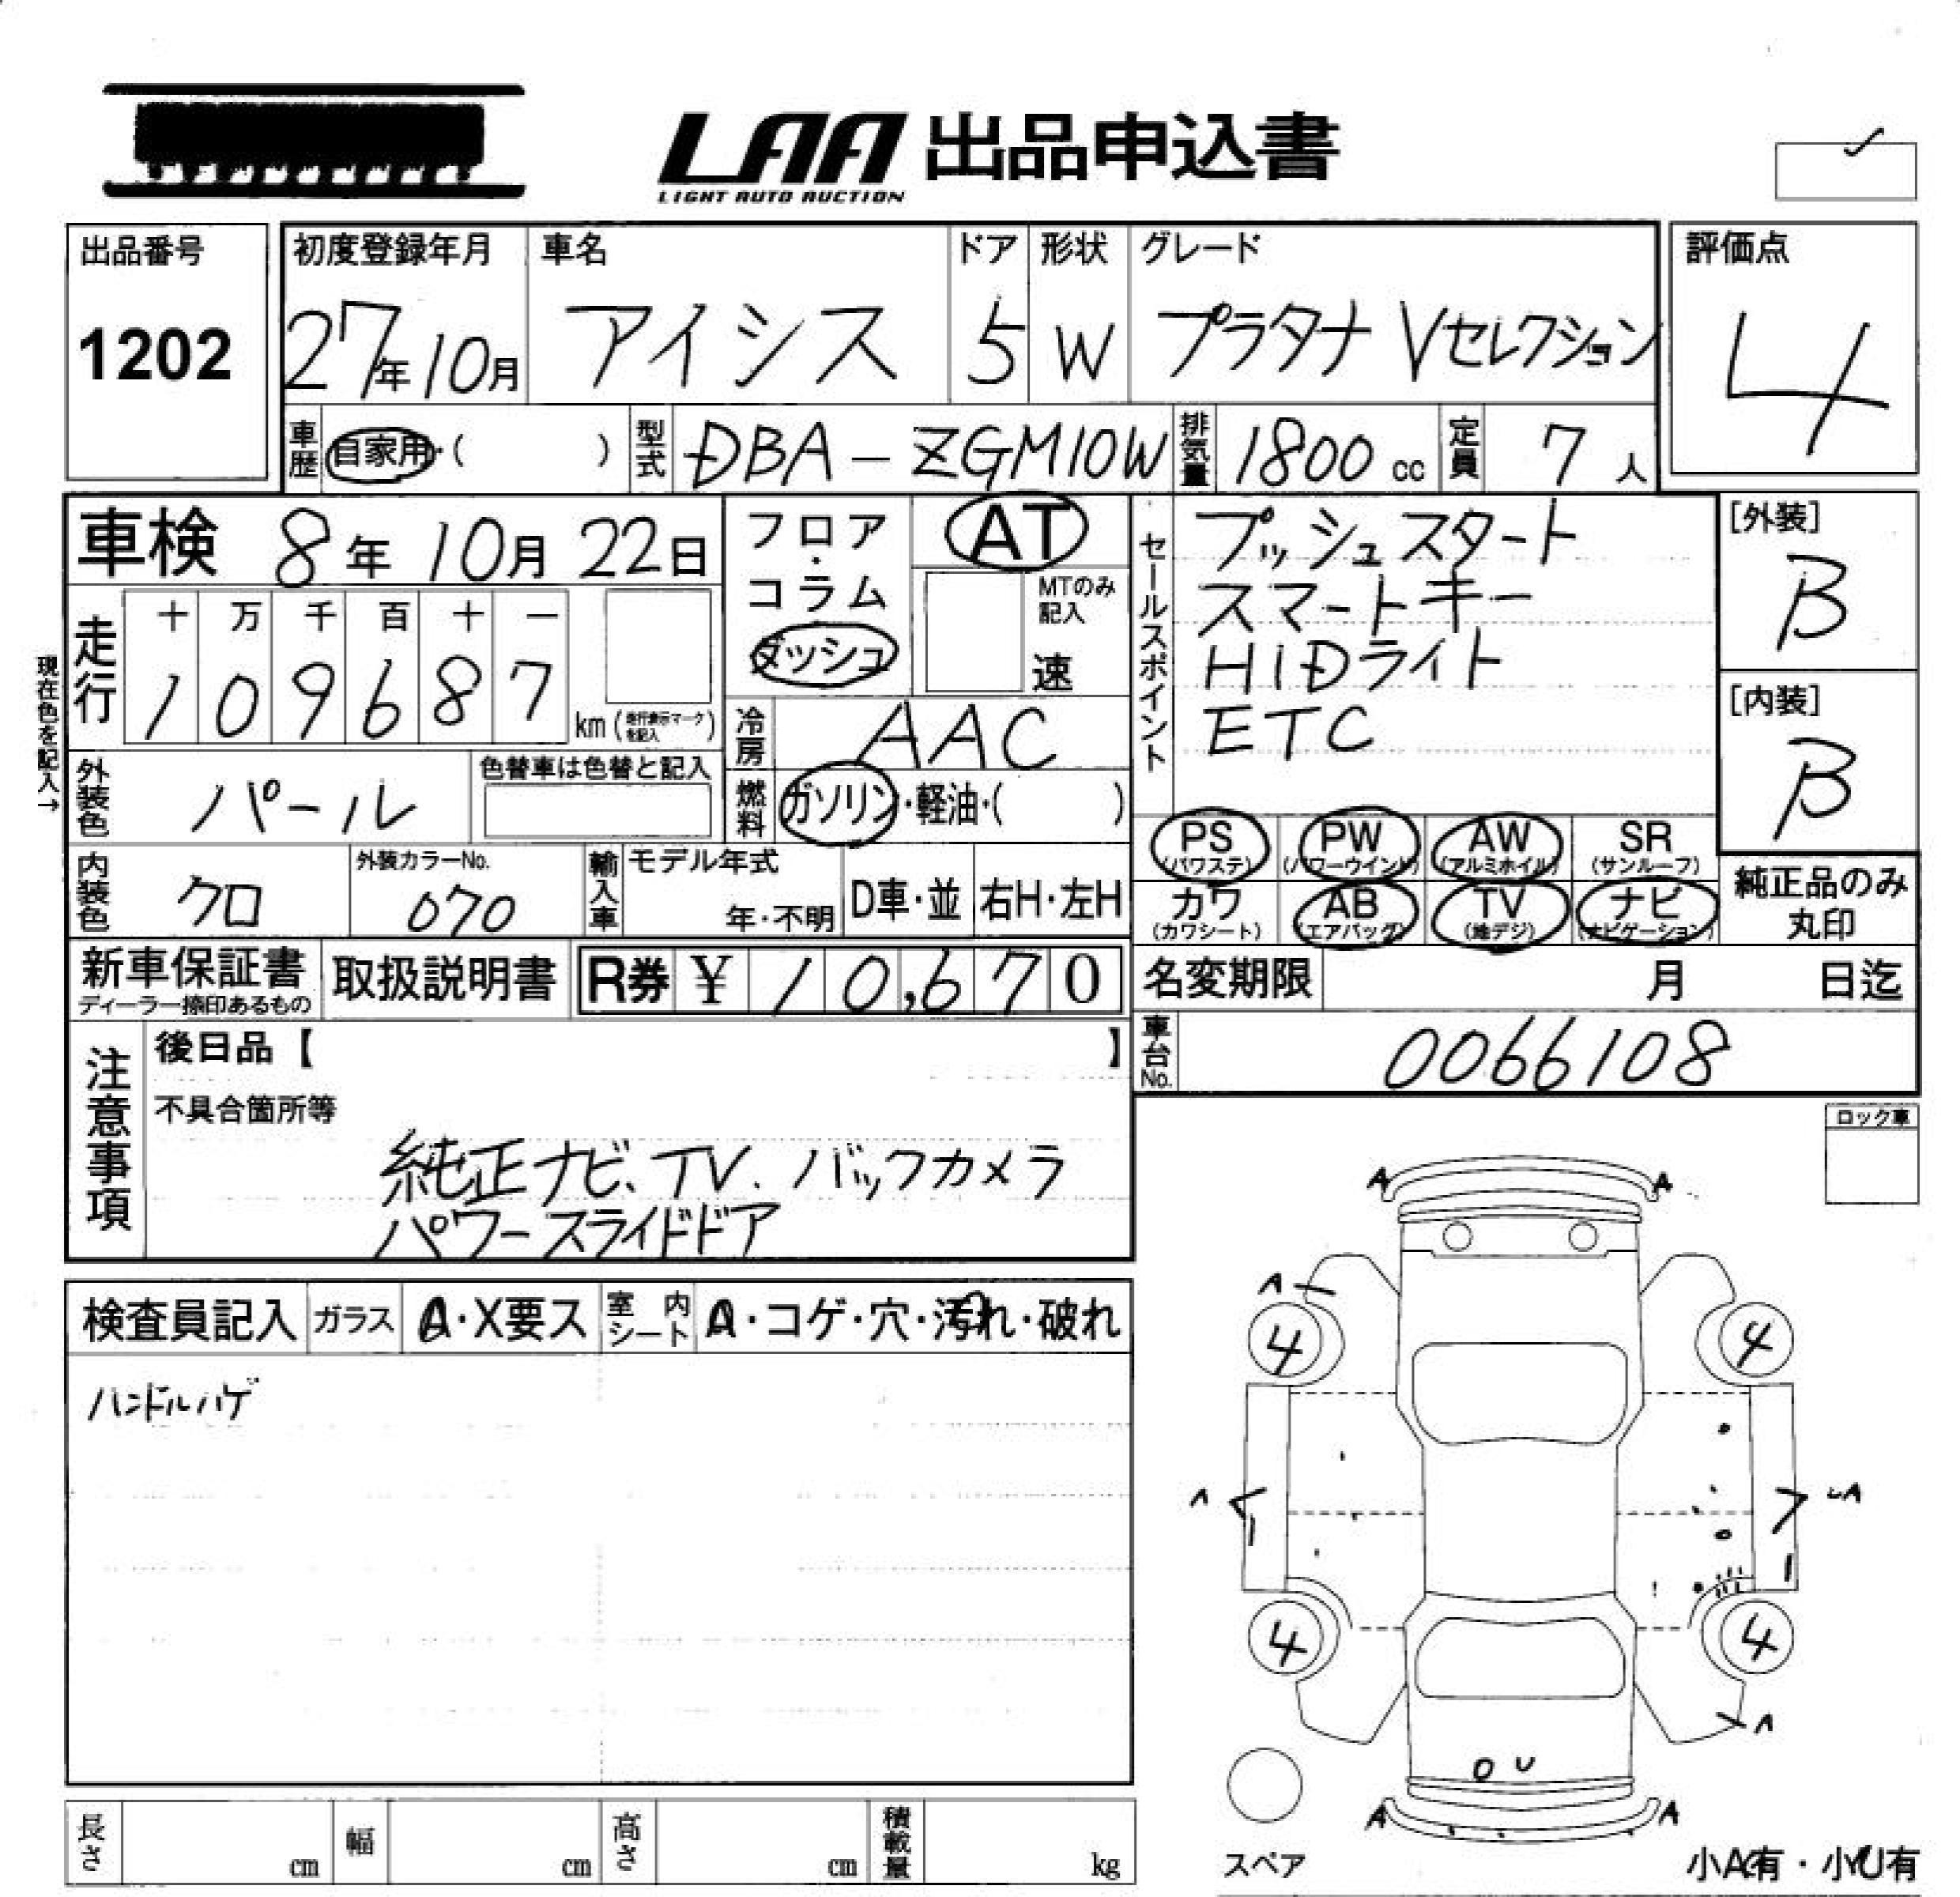 LAA 出品申込書
LIGHT AUTO AUCTION
出品番号
1202
初度登録年月
27年10月
車名
アイシス
ドア
5
形状
W
グレード
プラタナ Vセレクション
評価点
4
車歴
自家用・( )
型式
DBA-ZGM10W
排気量
1800 cc
定員
7 人
車検 8年 10月 22日
フロア・コラム
ダッシュ
AT
MTのみ記入
速
セールスポイント
プッシュスタート
スマートキー
HIDライト
ETC
[外装]
B
[内装]
B
現在色を記入→
走行
十 万 千 百 十 一
1 0 9 6 8 7
km (走行表示マークを記入)
冷房
AAC
外装色
パール
色替車は色替と記入
燃料
ガソリン・軽油・( )
PS (パワステ)
PW (パワーウインド)
AW (アルミホイル)
SR (サンルーフ)
カワ (カワシート)
AB (エアバッグ)
TV (地デジ)
ナビ (ナビゲーション)
純正品のみ丸印
内装色
クロ
外装カラーNo.
070
輸入車
モデル年式
年・不明
D車・並
右H・左H
新車保証書
ディーラー捺印あるもの
取扱説明書
R券 ¥ 10,670
名変期限 月 日迄
車台No.
0066108
注意事項
後日品【 】
不具合箇所等
純正ナビ、TV、バックカメラ
パワースライドドア
ロック車
検査員記入
ガラス
A・X要ス
室内シート
A・コゲ・穴・汚れ・破れ
ハンドルハゲ
A A
A
4 4
A A
4 4
A
U
A A
スペア
小A有・小U有
長さ cm
幅 cm
高さ cm
積載量 kg